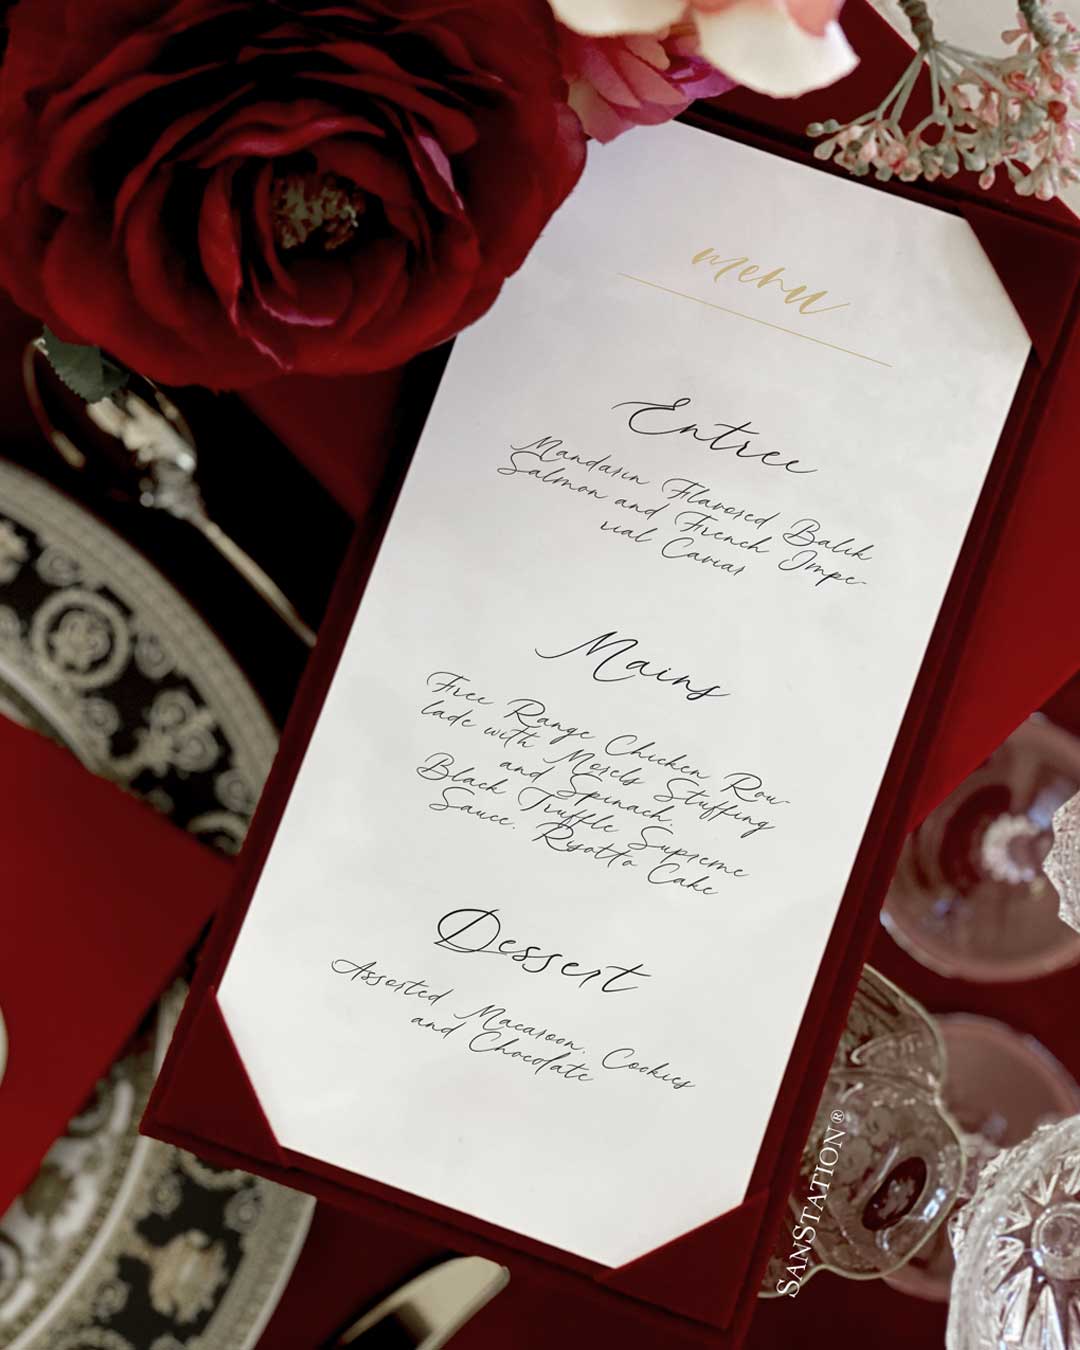 menu
Entree
Mandarin Flavored Balik
Salmon and French Impe-
rial Caviar
Mains
Free Range Chicken Rou-
lade with Morels Stuffing
and Spinach.
Black Truffle Supreme
Sauce. Risotto Cake
Dessert
Assorted Macaroon, Cookies
and Chocolate
SANSTATION®